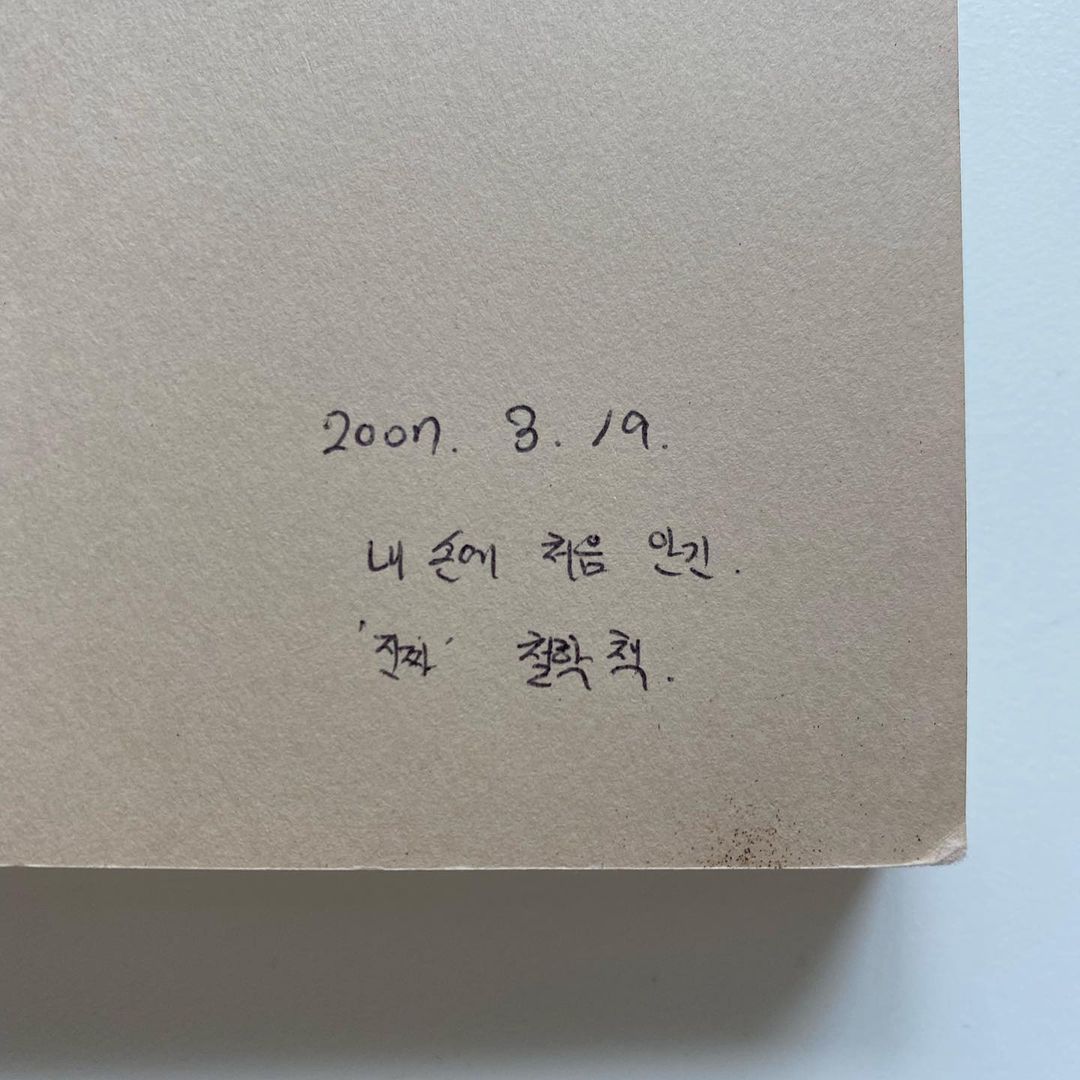 2007. 3. 19.
내 손에 처음 안긴.
'진짜' 철학 책.